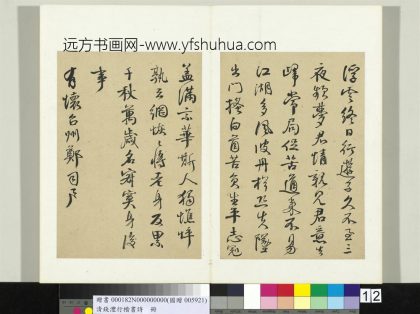 远方书画网-www.yfshuhua.com
浮雲終日行遊子久不至三
夜頻夢君情親見君意告
歸常局促苦道來不易
江湖多風波舟楫恐失墜
出門搔白首苦負平生志冠
蓋滿京華斯人獨憔悴
孰云網恢恢將老身反累
千秋萬歲名寂寞身後
事
有懷台州鄭司戶
贈書 000182N000000000(國贈 005921)
清錢灃行楷書詩 冊
12